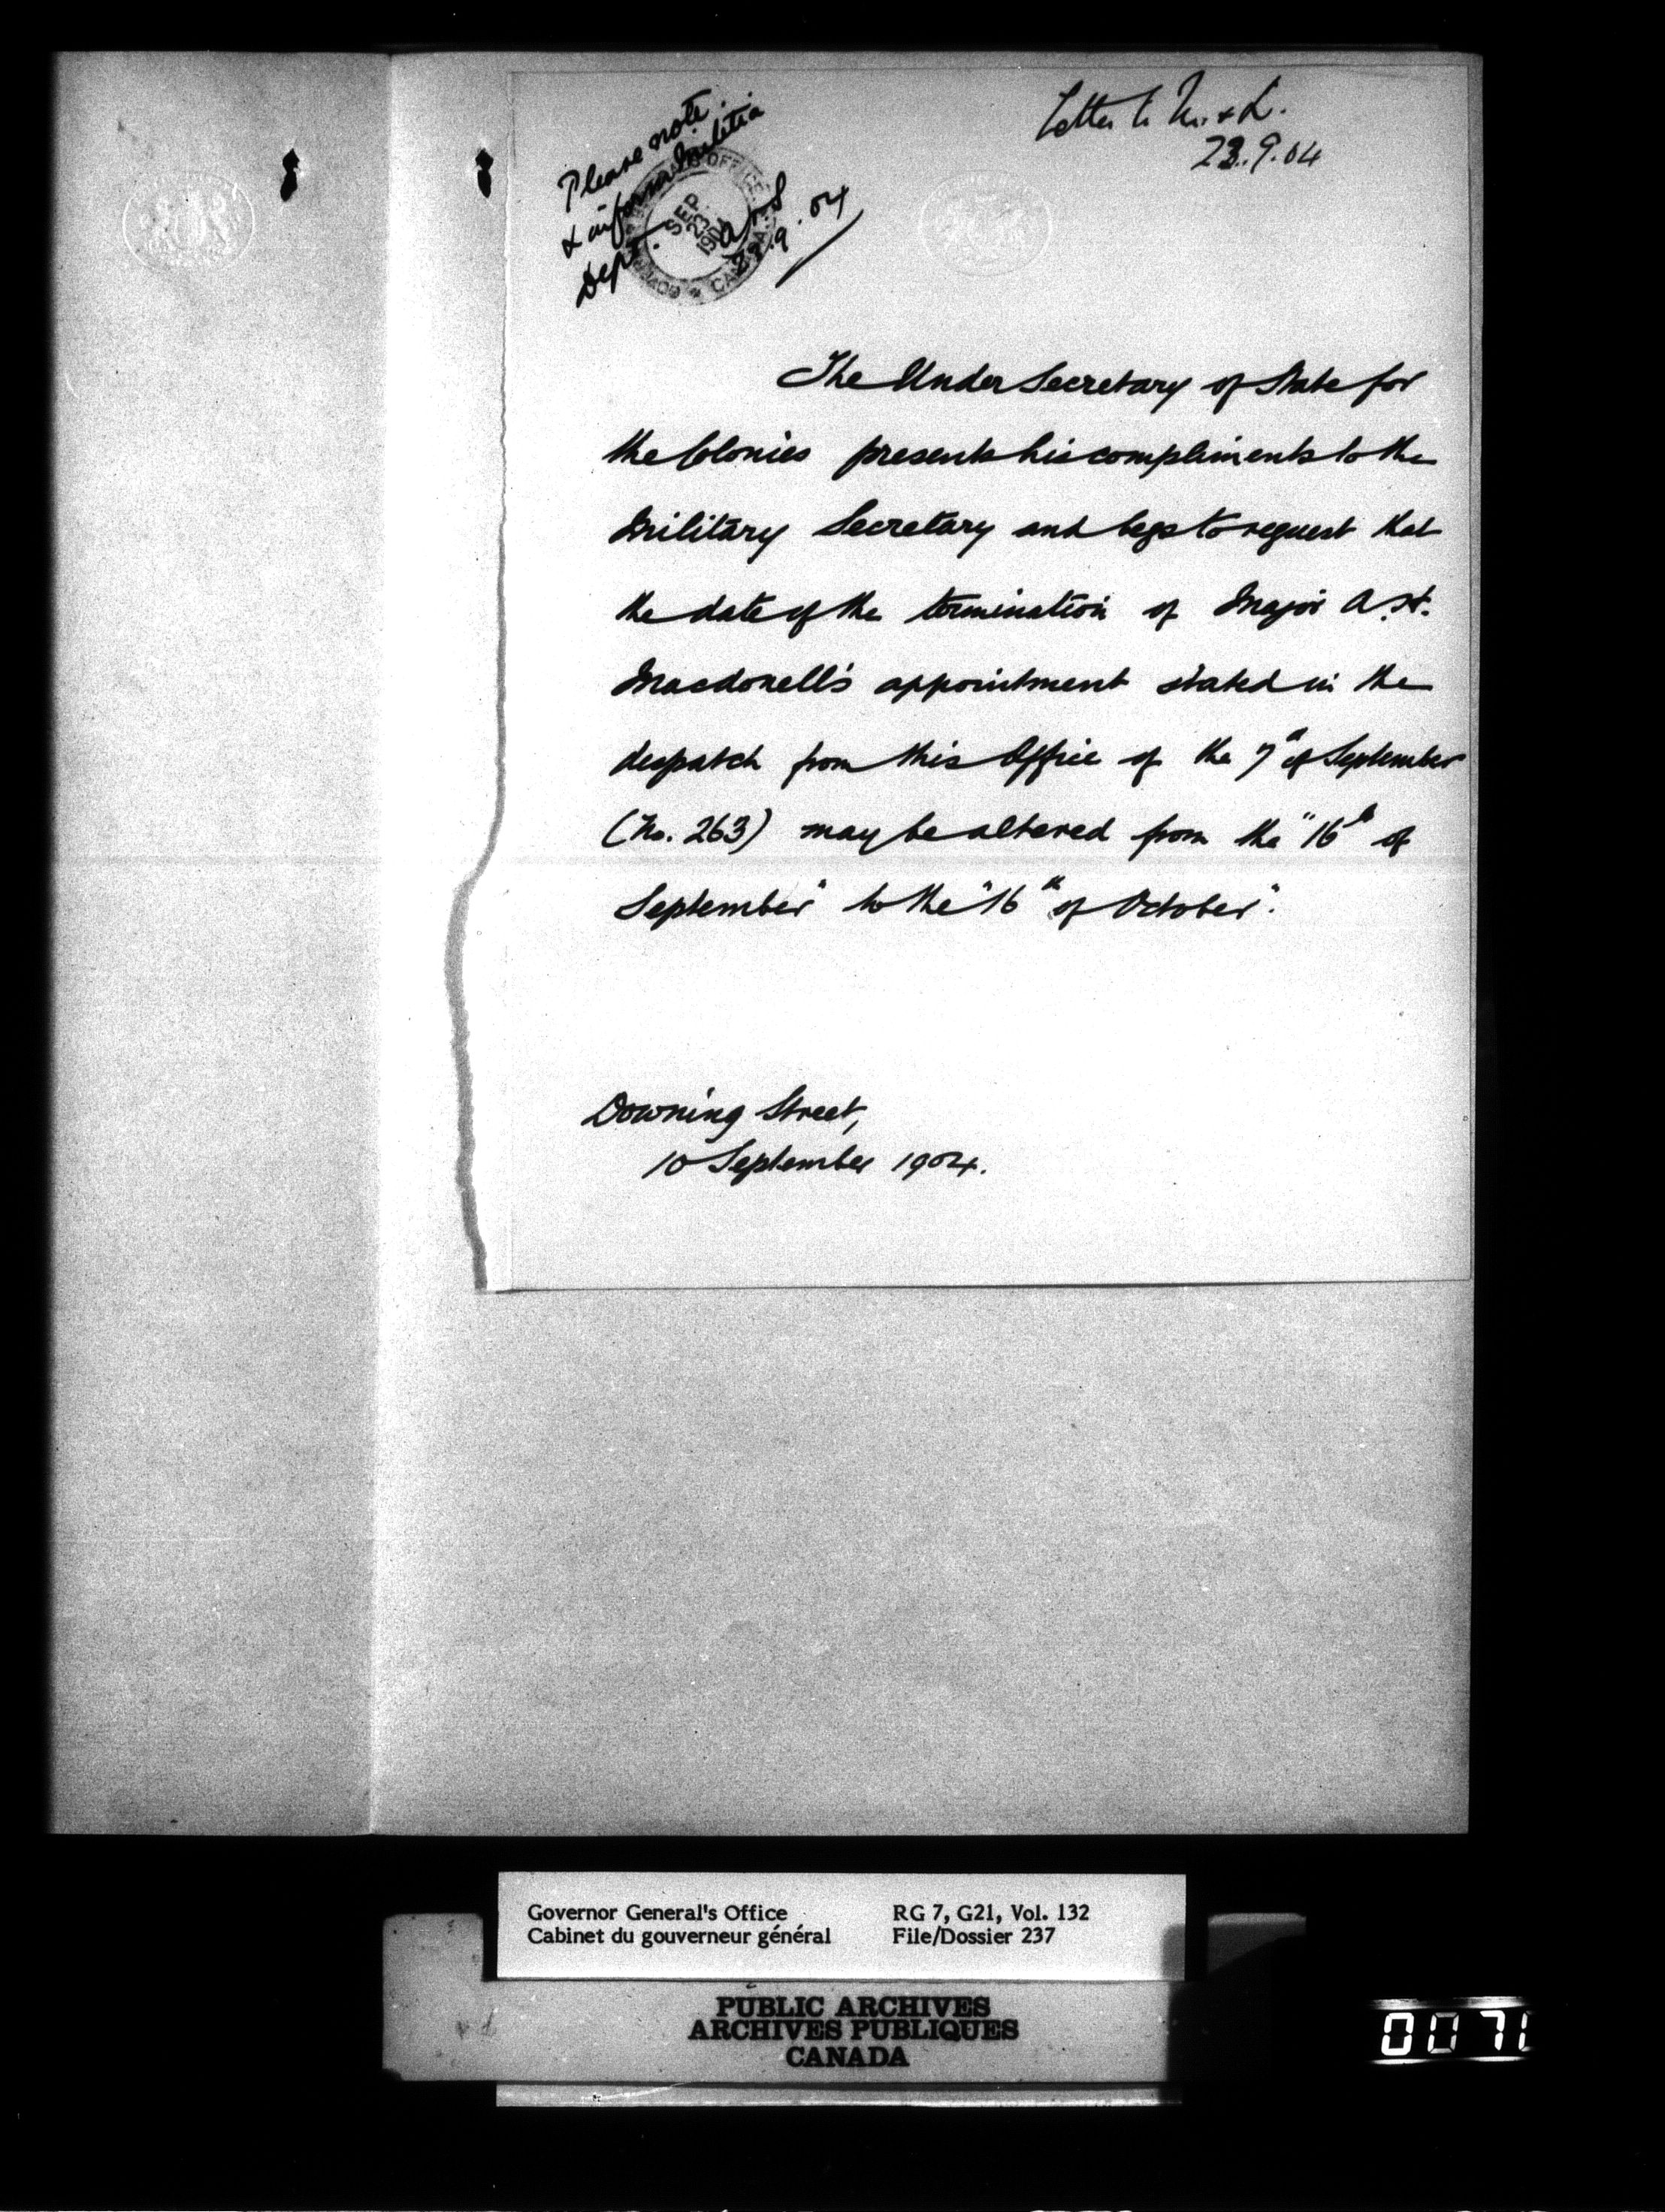 Letter to M. & D.
23.9.04
Please note
& inform Militia
Dept.
23.9.04
GOVERNOR OFFICE
SEP
23
1904
CANADA
The Under Secretary of State for
the Colonies presents his compliments to the
Military Secretary and begs to request that
the date of the termination of Major A.H.
Macdonell's appointment stated in the
despatch from this Office of the 7th of September
(No. 263) may be altered from the "16th of
September" to the "16th of October".
Downing Street,
10 September 1904.
Governor General's Office
Cabinet du gouverneur général
RG 7, G21, Vol. 132
File/Dossier 237
PUBLIC ARCHIVES
ARCHIVES PUBLIQUES
CANADA
0071